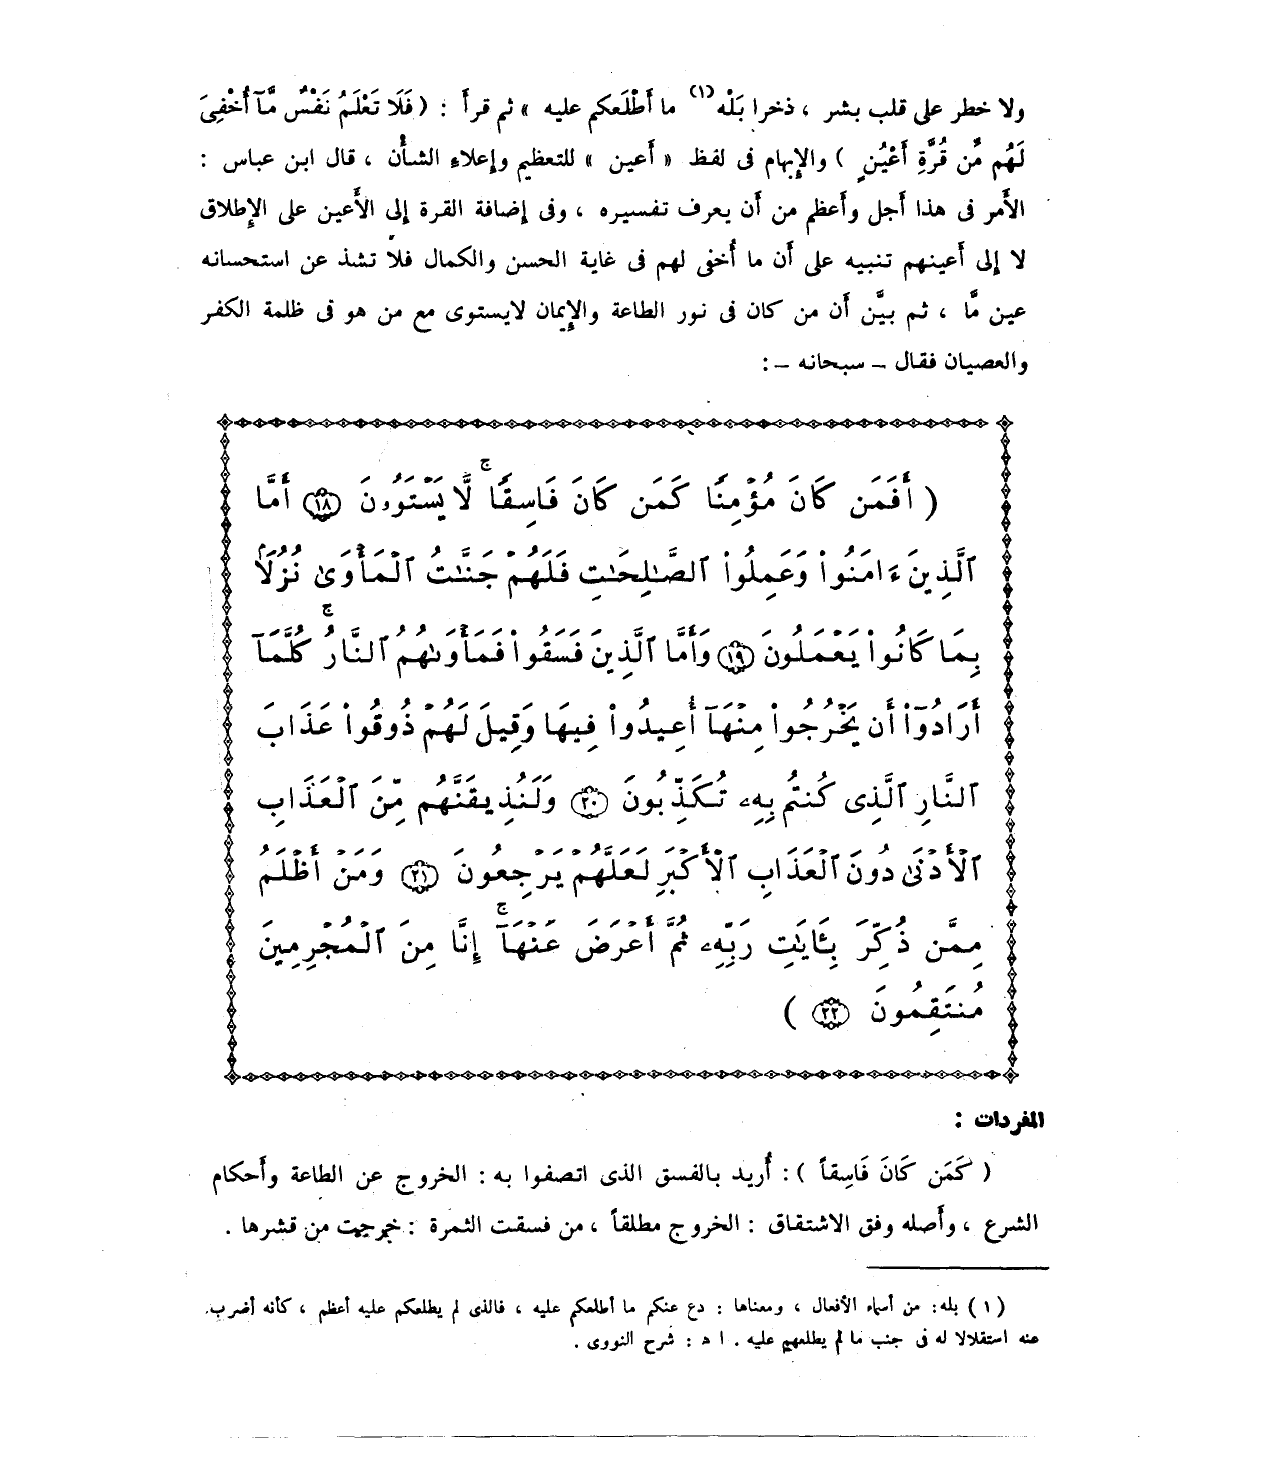 ولا خطر على قلب بشر ، ذخرا بَلْه(١) ما أَطْلَعكم عليه » ثم قرأَ : ( فَلَا تَعْلَمُ نَفْسٌ مَّآ أُخْفِىَ
لَهُم مِّن قُرَّةِ أَعْيُنٍ ) والإِبهام فى لفظ « أَعين » للتعظيم وإعلاءِ الشأْن ، قال ابن عباس :
الأَمر فى هذا أَجل وأَعظم من أَن يعرف تفسيره ، وفى إضافة القرة إلى الأَعين على الإِطلاق
لا إلى أَعينهم تنبيه على أَن ما أُخفى لهم فى غاية الحسن والكمال فلا تشذ عن استحسانه
عين مَّا ، ثم بيَّن أَن من كان فى نور الطاعة والإِيمان لايستوى مع من هو فى ظلمة الكفر
والعصيان فقال – سبحانه – :
( أَفَمَن كَانَ مُؤْمِنًا كَمَن كَانَ فَاسِقًا ۚ لَّا يَسْتَوُۥنَ ﴿١٨﴾ أَمَّا
ٱلَّذِينَ ءَامَنُوا۟ وَعَمِلُوا۟ ٱلصَّـٰلِحَـٰتِ فَلَهُمْ جَنَّـٰتُ ٱلْمَأْوَىٰ نُزُلًۢا
بِمَا كَانُوا۟ يَعْمَلُونَ ﴿١٩﴾ وَأَمَّا ٱلَّذِينَ فَسَقُوا۟ فَمَأْوَىٰهُمُ ٱلنَّارُ ۚ كُلَّمَآ
أَرَادُوٓا۟ أَن يَخْرُجُوا۟ مِنْهَآ أُعِيدُوا۟ فِيهَا وَقِيلَ لَهُمْ ذُوقُوا۟ عَذَابَ
ٱلنَّارِ ٱلَّذِى كُنتُم بِهِۦ تُكَذِّبُونَ ﴿٢٠﴾ وَلَنُذِيقَنَّهُم مِّنَ ٱلْعَذَابِ
ٱلْأَدْنَىٰ دُونَ ٱلْعَذَابِ ٱلْأَكْبَرِ لَعَلَّهُمْ يَرْجِعُونَ ﴿٢١﴾ وَمَنْ أَظْلَمُ
مِمَّن ذُكِّرَ بِـَٔايَـٰتِ رَبِّهِۦ ثُمَّ أَعْرَضَ عَنْهَآ ۚ إِنَّا مِنَ ٱلْمُجْرِمِينَ
مُنتَقِمُونَ ﴿٢٢﴾ )
المفردات :
( كَمَن كَانَ فَاسِقاً ) : أُريد بالفسق الذى اتصفوا به : الخروج عن الطاعة وأَحكام
الشرع ، وأَصله وفق الاشتقاق : الخروج مطلقاً ، من فسقت الثمرة : خرجت من قشرها .
( ١ ) بله : من أسماء الأفعال ، ومعناها : دع عنكم ما أطلعكم عليه ، فالذى لم يطلعكم عليه أعظم ، كأنه أضرب
عنه استقلالا له فى جنب ما لم يطلعهم عليه . ا ه : شرح النووى .